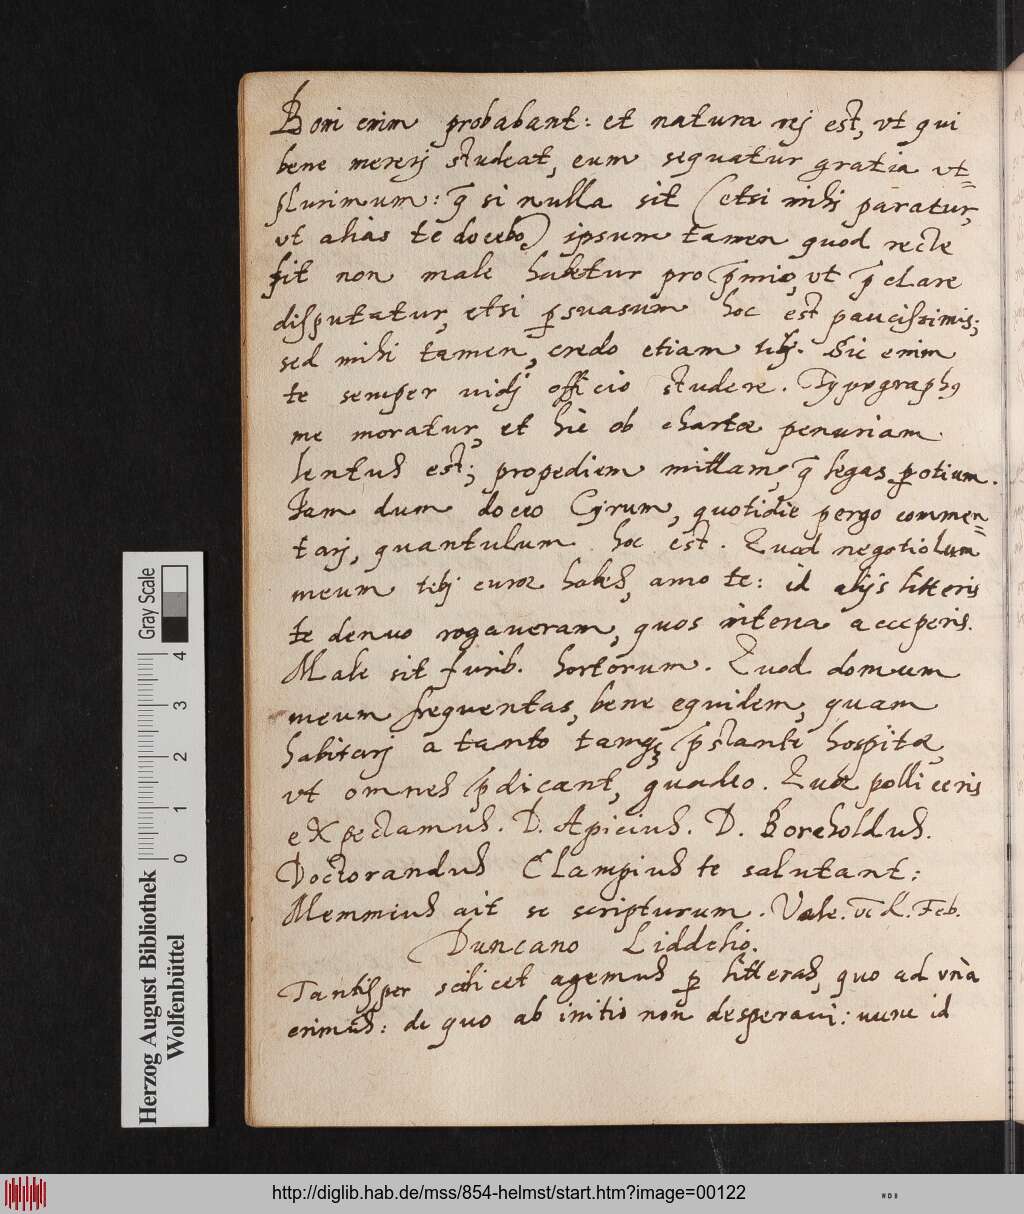 Boni enim probabant: et natura rej est, vt qui
bene mererj studeat, eum sequatur gratia vt=
plurimum: q̃ si nulla sit (etsi mihi paratur,
vt alias te docebo) ipsum tamen quod recte
fit non male habetur pro p̃mio, vt p̃clare
disputatur, etsi ꝑsuasum hoc est paucissimis;
sed mihi tamen, credo etiam tibj. Sic enim
te semper vidj officio studere. Typographꝰ
me moratur, et hic ob chartæ penuriam
lentus est; propediem mittam, q̃ legas ꝑ otium.
Nam dum doceo Cyrum, quotidie pergo commen=
tarj, quantulum hoc est. Quod negotiolum
meum tibj curæ habes, amo te: id alijs litteris
te denuo rogaveram, quos interea acceperis.
Male sit furib. hortorum. Quod domum
meum frequentas, bene equidem, quam
habitarj a tanto tamq̃ p̃stante hospitæ
vt omnes p̃dicant, gaudeo. Quæ polliceris
expectamus. D. Apicius. D. Boreholdus.
Doctorandus Clampius te salutant:
Memmius ait se scripturum. Vale. Feb.
Duncano Liddelio.
Tantisper scilicet agemus ꝑ litteras, quo ad vnà
erimus: de quo ab initio non desperavi: nunc id
Herzog August Bibliothek
Wolfenbüttel
Gray Scale
0 1 2 3 4
http://diglib.hab.de/mss/854-helmst/start.htm?image=00122
WDB